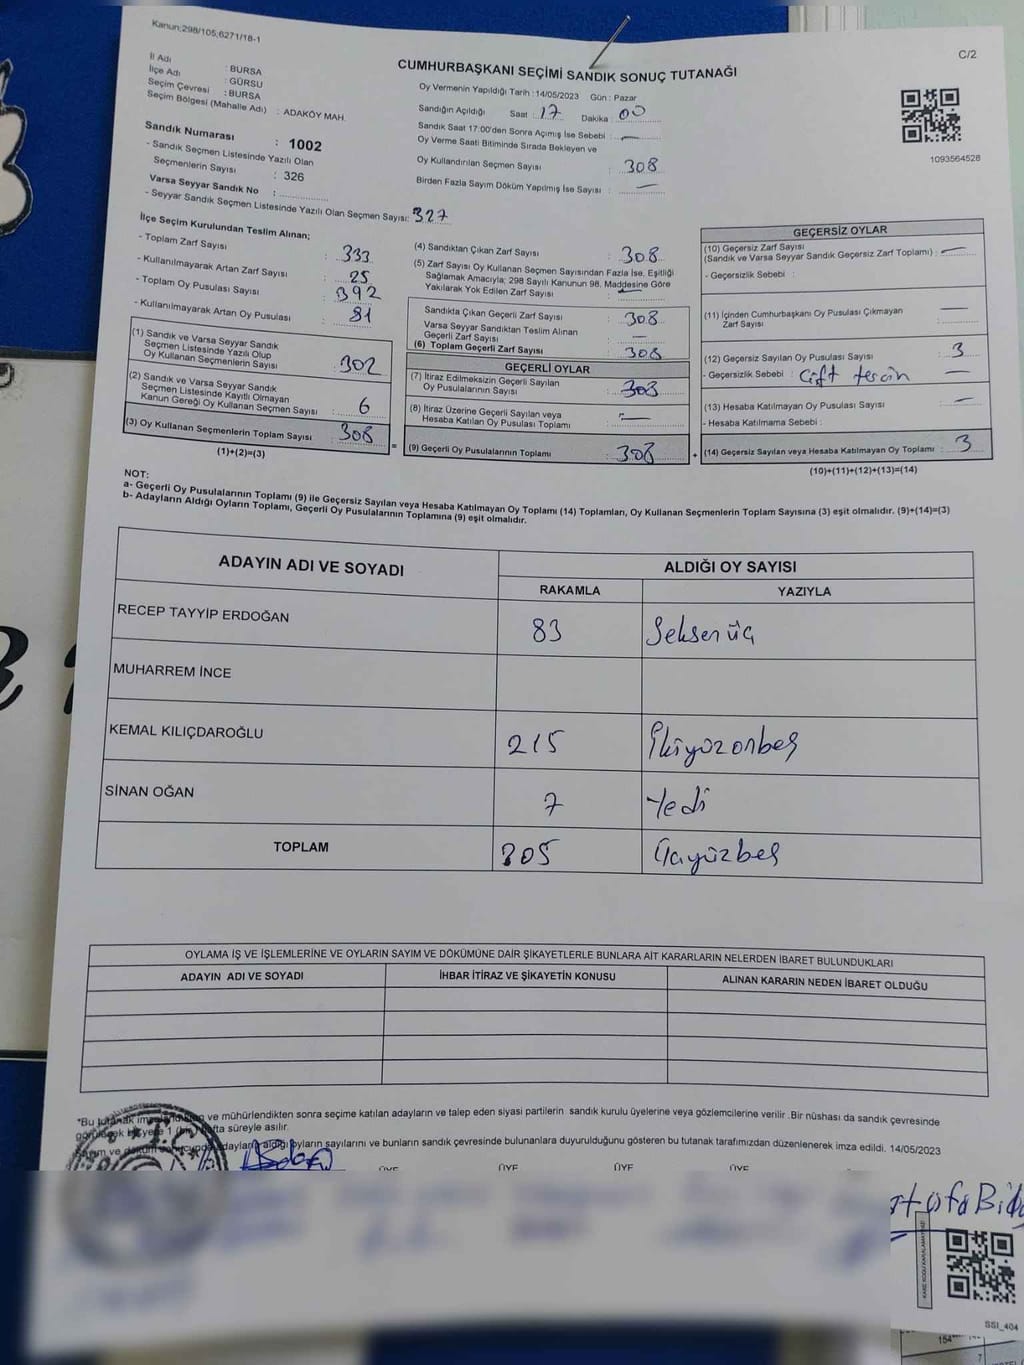 Kanun:298/105,6271/18-1
C/2
CUMHURBAŞKANI SEÇİMİ SANDIK SONUÇ TUTANAĞI
İl Adı : BURSA
İlçe Adı : GÜRSU
Seçim Çevresi : BURSA
Seçim Bölgesi (Mahalle Adı) : ADAKÖY MAH.
Sandık Numarası : 1002
- Sandık Seçmen Listesinde Yazılı Olan
Seçmenlerin Sayısı : 326
Varsa Seyyar Sandık No :
- Seyyar Sandık Seçmen Listesinde Yazılı Olan Seçmen Sayısı: 327
Oy Vermenin Yapıldığı Tarih :14/05/2023 Gün : Pazar
Sandığın Açıldığı Saat : 17 Dakika : 00
Sandık Saat 17:00'den Sonra Açımış İse Sebebi : —
Oy Verme Saati Bitiminde Sırada Bekleyen ve
Oy Kullandırılan Seçmen Sayısı : 308
Birden Fazla Sayım Döküm Yapılmış İse Sayısı : —
1093564528
İlçe Seçim Kurulundan Teslim Alınan;
- Toplam Zarf Sayısı : 333
- Kullanılmayarak Artan Zarf Sayısı : 25
- Toplam Oy Pusulası Sayısı : 392
- Kullanılmayarak Artan Oy Pusulası : 81
(1) Sandık ve Varsa Seyyar Sandık
Seçmen Listesinde Yazılı Olup
Oy Kullanan Seçmenlerin Sayısı : 302
(2) Sandık ve Varsa Seyyar Sandık
Seçmen Listesinde Kayıtlı Olmayan
Kanun Gereği Oy Kullanan Seçmen Sayısı : 6
(3) Oy Kullanan Seçmenlerin Toplam Sayısı : 308
(1)+(2)=(3)
(4) Sandıktan Çıkan Zarf Sayısı : 308
(5) Zarf Sayısı Oy Kullanan Seçmen Sayısından Fazla İse, Eşitliği
Sağlamak Amacıyla; 298 Sayılı Kanunun 98. Maddesine Göre
Yakılarak Yok Edilen Zarf Sayısı : —
Sandıkta Çıkan Geçerli Zarf Sayısı : 308
Varsa Seyyar Sandıktan Teslim Alınan
Geçerli Zarf Sayısı : —
(6) Toplam Geçerli Zarf Sayısı : 308
GEÇERLİ OYLAR
(7) İtiraz Edilmeksizin Geçerli Sayılan
Oy Pusulalarının Sayısı : 308
(8) İtiraz Üzerine Geçerli Sayılan veya
Hesaba Katılan Oy Pusulası Toplamı : —
= (9) Geçerli Oy Pusulalarının Toplamı : 308 +
GEÇERSİZ OYLAR
(10) Geçersiz Zarf Sayısı
(Sandık ve Varsa Seyyar Sandık Geçersiz Zarf Toplamı) : —
- Geçersizlik Sebebi :
(11) İçinden Cumhurbaşkanı Oy Pusulası Çıkmayan —
Zarf Sayısı :
(12) Geçersiz Sayılan Oy Pusulası Sayısı : 3
- Geçersizlik Sebebi : Çift tercin —
(13) Hesaba Katılmayan Oy Pusulası Sayısı : —
- Hesaba Katılmama Sebebi :
(14) Geçersiz Sayılan veya Hesaba Katılmayan Oy Toplamı : 3
(10)+(11)+(12)+(13)=(14)
NOT:
a- Geçerli Oy Pusulalarının Toplamı (9) ile Geçersiz Sayılan veya Hesaba Katılmayan Oy Toplamı (14) Toplamları, Oy Kullanan Seçmenlerin Toplam Sayısına (3) eşit olmalıdır. (9)+(14)=(3)
b- Adayların Aldığı Oyların Toplamı, Geçerli Oy Pusulalarının Toplamına (9) eşit olmalıdır.
ADAYIN ADI VE SOYADI ALDIĞI OY SAYISI
RAKAMLA YAZIYLA
RECEP TAYYİP ERDOĞAN 83 Seksen üç
MUHARREM İNCE
KEMAL KILIÇDAROĞLU 215 İkiyüzonbeş
SİNAN OĞAN 7 Yedi
TOPLAM 305 Üçyüzbeş
OYLAMA İŞ VE İŞLEMLERİNE VE OYLARIN SAYIM VE DÖKÜMÜNE DAİR ŞİKAYETLERLE BUNLARA AİT KARARLARIN NELERDEN İBARET BULUNDUKLARI
ADAYIN ADI VE SOYADI İHBAR İTİRAZ VE ŞİKAYETİN KONUSU ALINAN KARARIN NEDEN İBARET OLDUĞU
*Bu tutanak ve mühürlendikten sonra seçime katılan adayların ve talep eden siyasi partilerin sandık kurulu üyelerine veya gözlemcilerine verilir .Bir nüshası da sandık çevresinde
süreyle asılır.
aldığı oyların sayılarını ve bunların sandık çevresinde bulunanlara duyurulduğunu gösteren bu tutanak tarafımızdan düzenlenerek imza edildi. 14/05/2023
ÜYE ÜYE ÜYE ÜYE
SSI_404
154
7